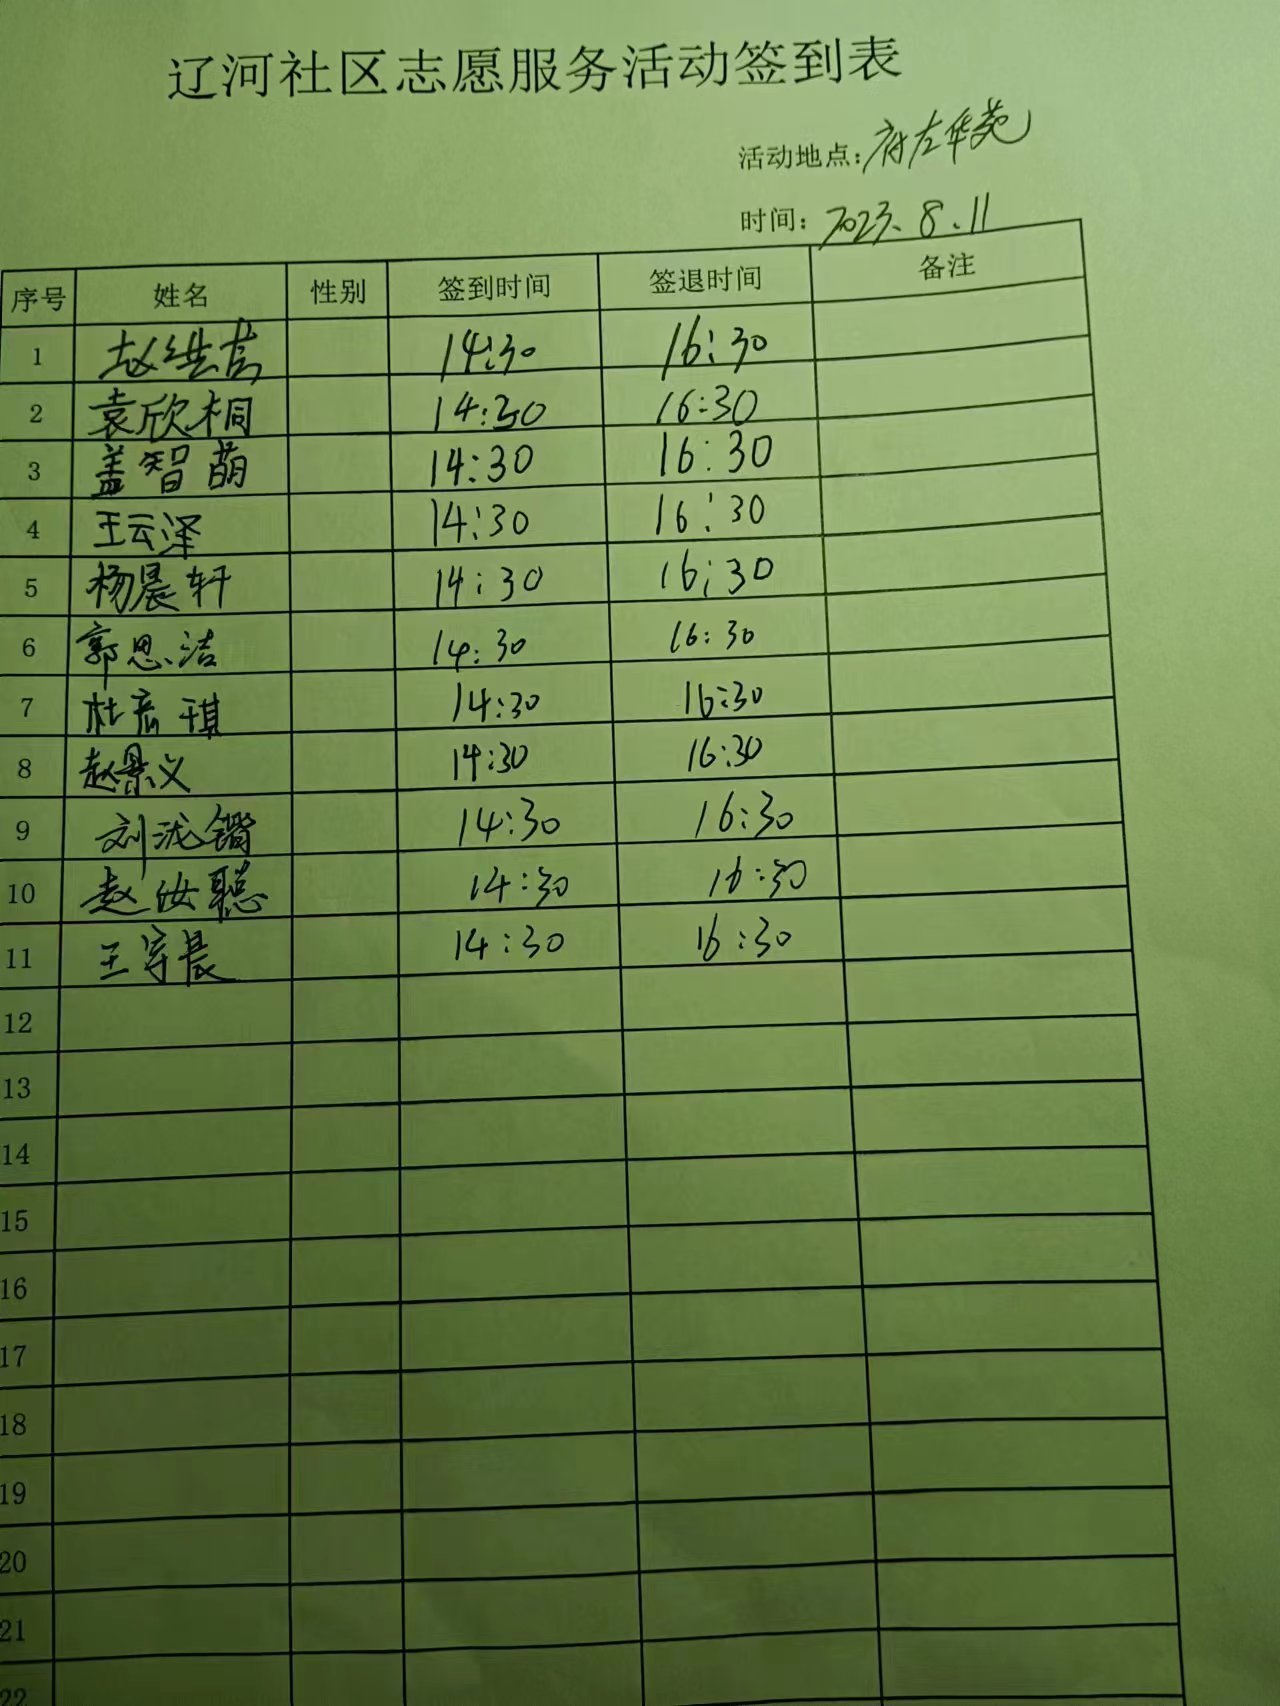 辽河社区志愿服务活动签到表
活动地点：府左华苑
时间：2023.8.11
序号 姓名 性别 签到时间 签退时间 备注
1 赵 14:30 16:30
2 袁欣桐 14:30 16:30
3 盖智萌 14:30 16:30
4 王云泽 14:30 16:30
5 杨晨轩 14:30 16:30
6 郭思洁 14:30 16:30
7 杜彦琪 14:30 16:30
8 赵景义 14:30 16:30
9 刘泷镯 14:30 16:30
10 赵汝聪 14:30 16:30
11 王宇晨 14:30 16:30
12
13
14
15
16
17
18
19
20
21
22